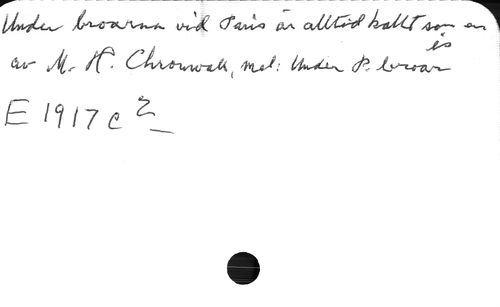 Under broarna vid Paris är alltid kallt som en is
av M. H. Chronwall, mel: Under P. broar
E 1917 c 2